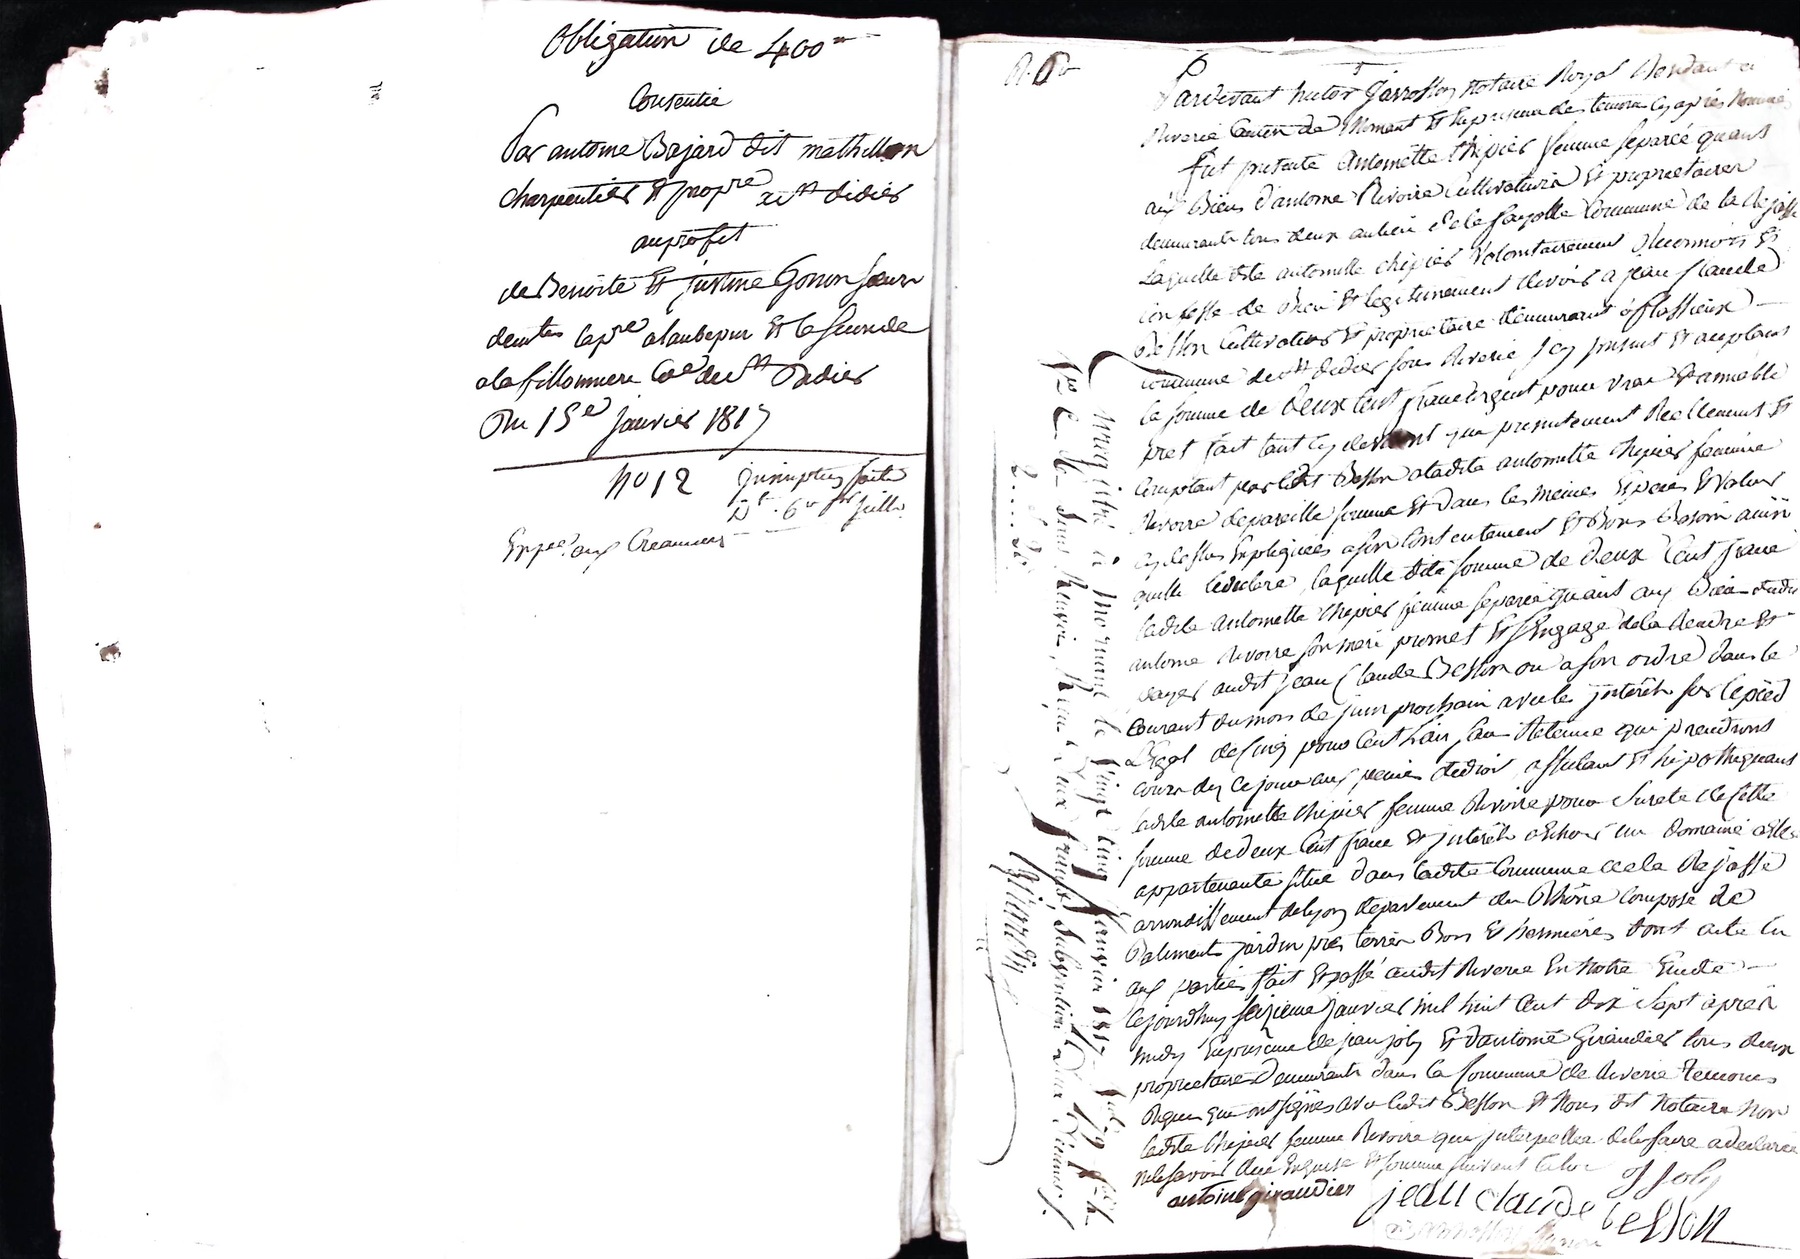 Obligation de 400 ᵐ
Consentie
Par antoine Bajard dit mathillon
charpentier Et propre St didier
au profit
de Benoite Et justine Gonon Sœurs
demtes la pre a laubepin Et la seconde
a la fillonniere Cne de St Didier
Du 15e janvier 1817
No 12
Inscription faite
Exped. aux Creanciers
Pardevant Garrosson notaire Royal Residant a
Riverie Canton de Mornant Et En presence des temoins Cy après Nommés
fut presente Antoinette Chipier femme separée quant
aux Biens d'antoine Rivoire Cultivateurs Et proprietaires
demeurants tous deux au lieu de la fayolle Commune de la Rajasse
Laquelle dite antoinette chipier Volontairement Reconnois Et
Confesse de Bien Et legitimement devoir a jean Claude
Besson Cultivateur Et proprietaire demeurant à flassieux
commune de St didier sous Riverie Icy present Et acceptant
la somme de deux Cent franc argent pour vrai Et amiable
pret fait tant Cy devant que presentement Reellement Et
Comptant par ledit Besson a ladite antoinette chipier femme
Rivoire de pareille somme Et dans les mêmes Espèces Et Valeur
Cy dessus Expliquées a son Contentement Et Bons Besoin ainsi
quelle le declare, laquelle dite somme de deux Cent franc
ladite antoinette chipier femme separée quant aux Biens dudit
antoine Rivoire son mari promet Et s'Engage de la Rendre Et
payer audit jean Claude Besson ou a son ordre dans le
Courant du mois de juin prochain avec les jnterêts sur le pied
Légal de Cinq pour Cent L'an sans Retenue qui prendront
cours dez Ce jour aux peines de droit, affectant Et hipothequant
ladite antoinette chipier femme Rivoire pour Surete de Cette
somme de deux Cent franc Et jnterêts a Echoir un domaine a Elle
appartenante situé dans ladite Commune de la Rajasse
arrondissement de lyon departement du Rhône composé de
Batiments jardin prés terres Bois Et hermières dont acte lu
aux parties fait Et passé audit Riverie En notre Etude
Cejourdhuy seizieme janvier mil huit Cent dix Sept après
midy En presence de jean joly Et d'antoine Giraudier tous deux
proprietaires demeurants dans la Commune de Riverie temoins
Requis qui ont signés avec ledit Besson Et Nous dit Notaire Non
ladite Chipier femme Rivoire qui jnterpellée de le faire a declarée
ne le savoir de ce Enquise Et sommée suivant la loi
J Joly
antoine giraudier jean claude besson
Enregistré à Mornant le vingt cinq Janvier 1817
Reçu deux francs, Subvention vingt Centimes.
Girardin